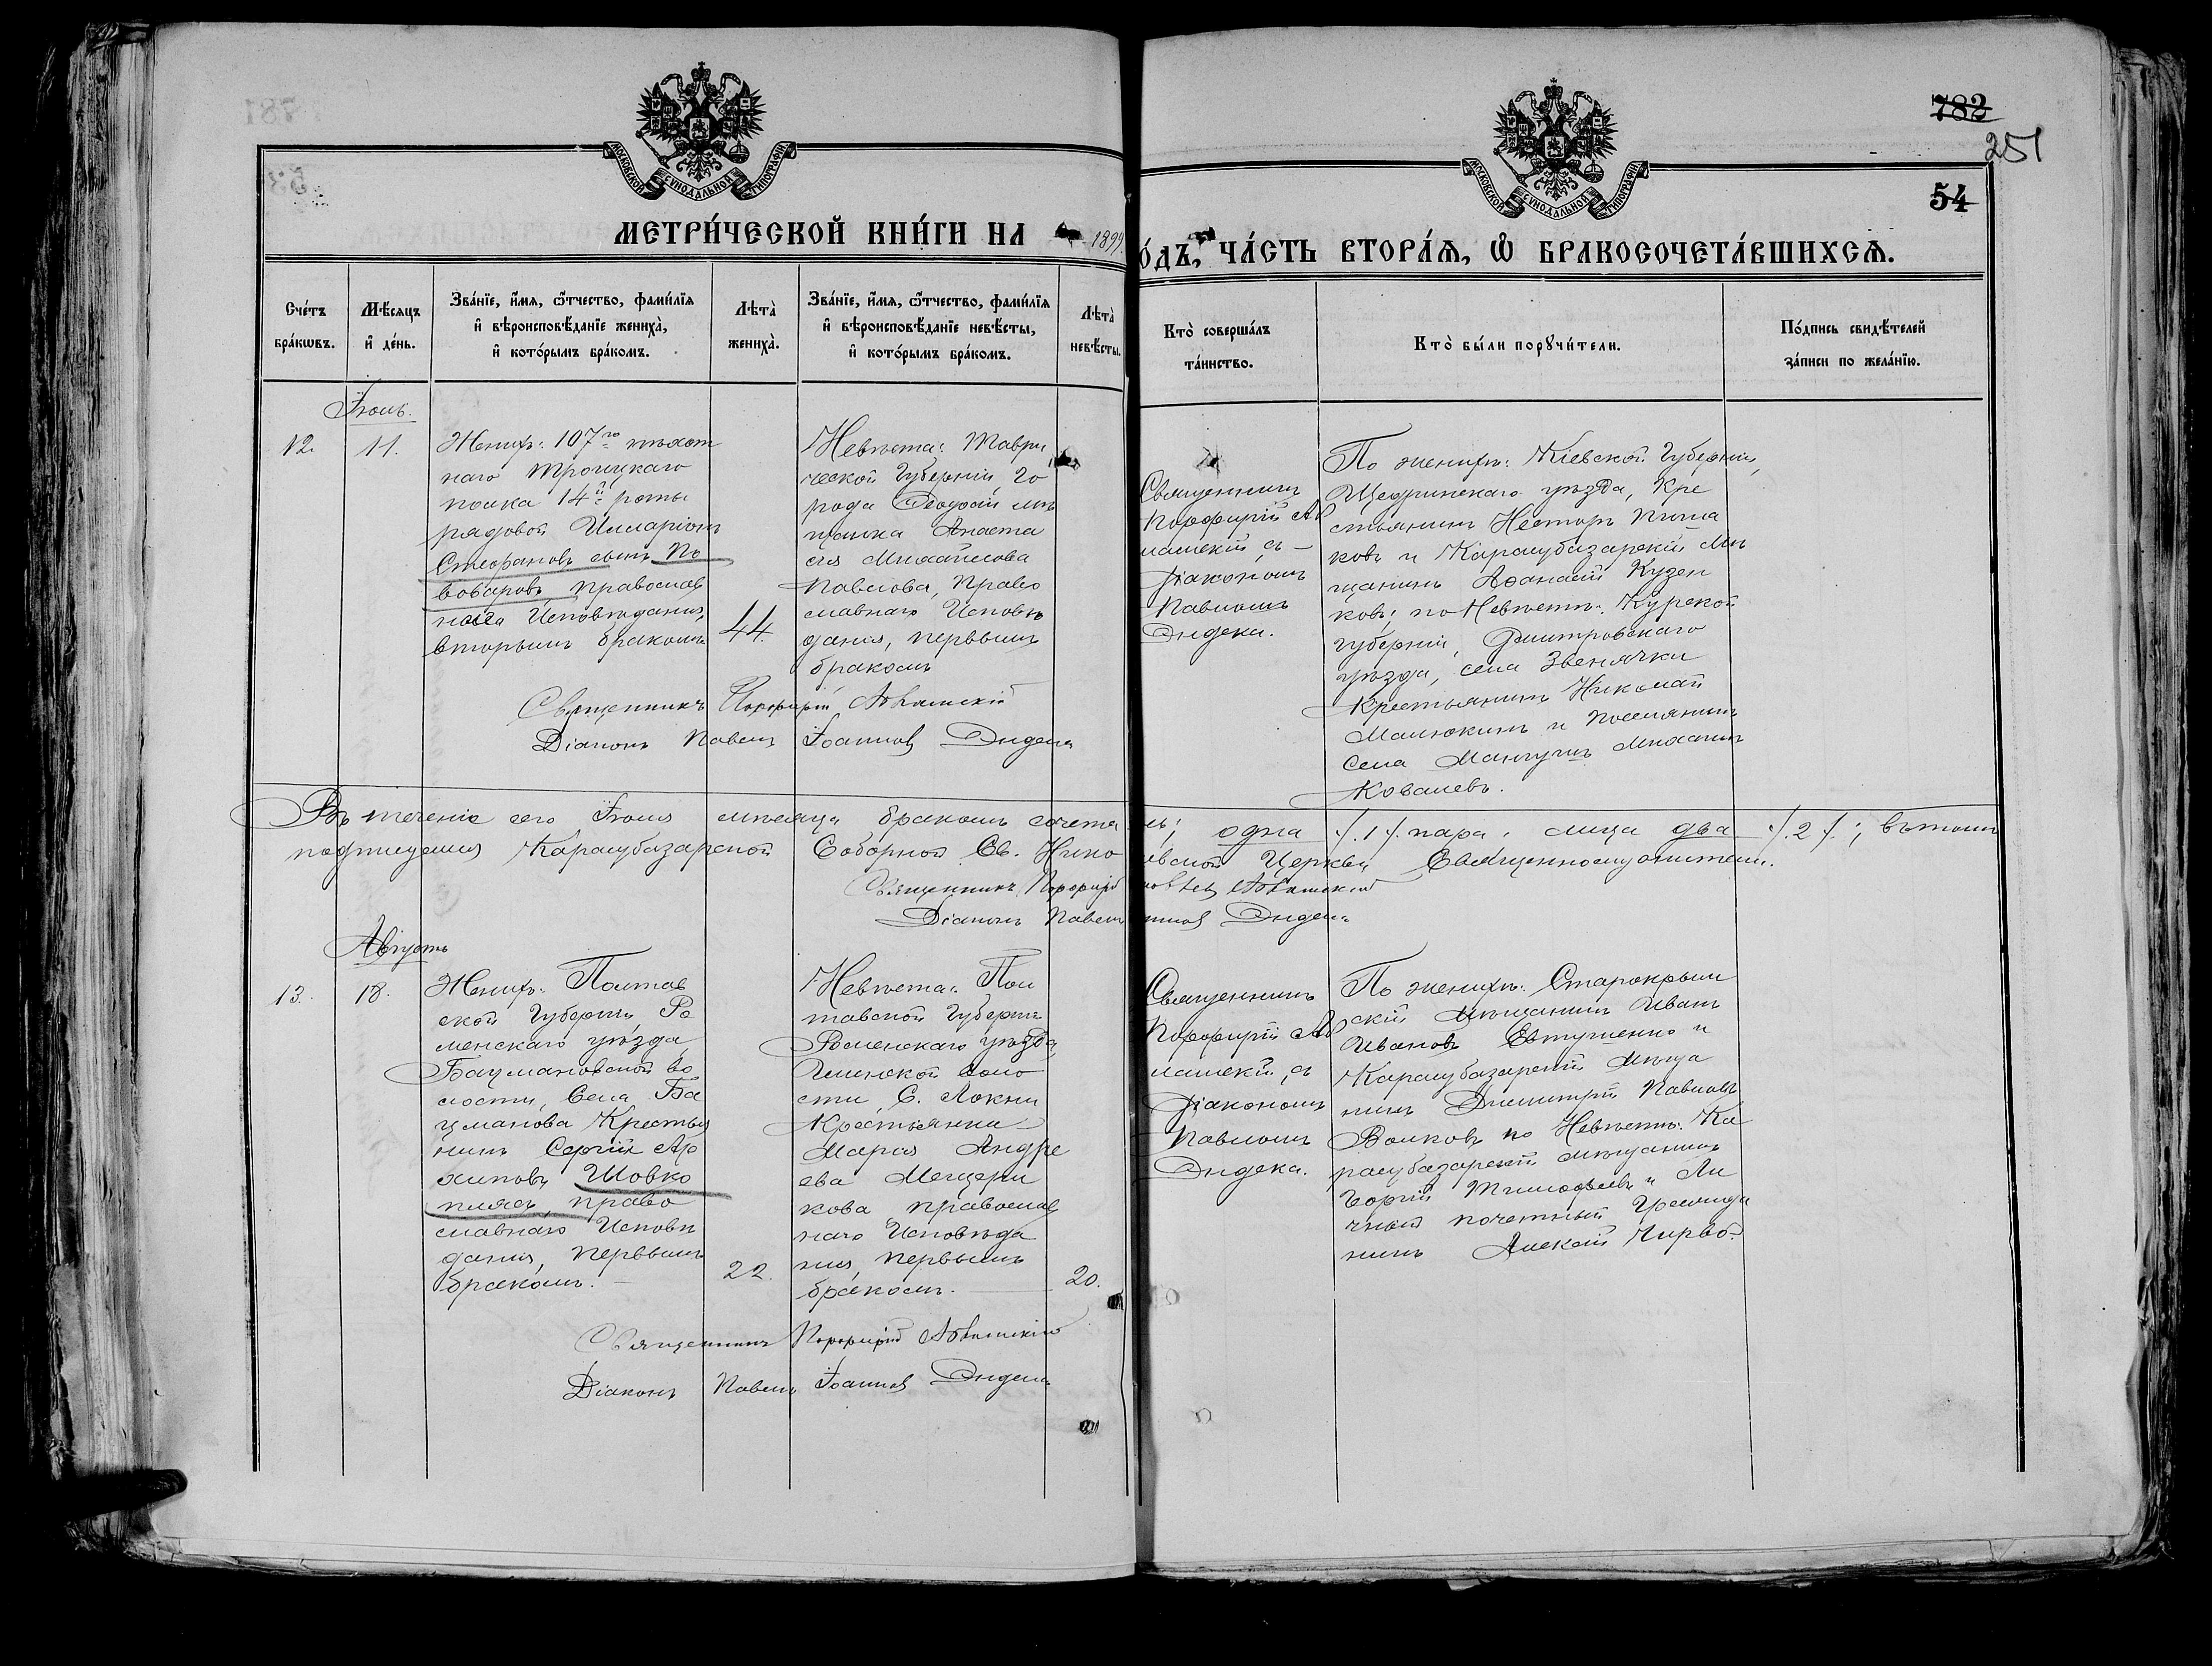 782
251
54
МОСКОВСКОЙ СѴНОДАЛЬНОЙ ТИПОГРАФІИ
МОСКОВСКОЙ СѴНОДАЛЬНОЙ ТИПОГРАФІИ
МЕТРИ́ЧЕСКОЙ КНИ́ГИ НА 1899
О́ДЪ, ЧА́СТЬ ВТОРА́Ѧ, Ѽ БРАКОСОЧЕТА́ВШИХСѦ.
Сче́тъ
бра́кѡвъ.
Мѣ́сяцъ
и҆ де́нь.
Зва́нїе, и҆́мѧ, ѻ҆́тчество, фами́лїѧ
и҆ вѣроисповѣ́данїе жениха̀,
и҆ кото́рымъ бра́комъ.
Лѣта̀
жениха̀.
Зва́нїе, и҆́мѧ, ѻ҆́тчество, фами́лїѧ
и҆ вѣроисповѣ́данїе невѣ́сты,
и҆ кото́рымъ бра́комъ.
Лѣта̀
невѣ́сты.
Кто̀ соверша́лъ
та́инство.
Кто̀ бы́ли порꙋчи́тели.
По́дпись свидѣ́телей
за́писи по жела́нїю.
Іюль.
12.
11.
Женихъ: 107го пѣхот
наго Троицкаго
полка 14й роты
рядовой Илларіонъ
Стефановъ сынъ По
воваровъ, православ
наго Исповѣданія,
вторымъ бракомъ
44.
Невѣста: Таври
ческой Губерніи, го
рода Ѳеодосіи мѣ
щанка Анаста
сія Михайлова
Павлова, Право
славнаго Исповѣ
данія, первымъ
бракомъ
Священникъ
Порфирій Аб
лашскій, съ
Діакономъ
Павломъ
Эндека.
По женихѣ: Кіевской Губерніи,
уѣзда, Кре
стьянинъ Несторъ
ковъ и Карасубазарскій Мѣ
щанинъ Аѳанасій Кузен
ковъ; по Невѣстѣ: Курской
губерніи, Дмитровскаго
уѣзда, села Звенячки
Крестьянинъ Николай
Малюкинъ и Поселянинъ
Села Мангушъ Михаилъ
Ковалевъ.
Священникъ Порфирій Аблашскій
Діаконъ Павелъ Іоанновъ Эндека
Въ теченіе сего Іюля мѣсяца бракомъ сочета
нь; одна ./.1./. пара; лица два ./.2./.; въ томъ
подписуемся Карасубазарской Соборной Св. Нико
Церкви Священнослужители.
Священникъ Порфирій Аблашскій
Діаконъ Павелъ Эндека
Августъ
13.
18.
Женихъ: Полтав
ской Губерніи Ро
менскаго уѣзда
Бацмановской во
лости, Села Ба
цманова Крестья
нинъ Сергій Ар
хиповъ Шовко
плясъ, право
славнаго Исповѣ
данія, первымъ
бракомъ.
22.
Невѣста: Пол
тавской Губерніи
Роменскаго уѣзда
воло
сти, С. Локни
Крестьянка
Марія Андре
ева Мещеря
кова православ
наго Исповѣда
нія, первымъ
бракомъ.
20.
Священникъ
Порфирій Аб
лашскій, съ
Діакономъ
Павломъ
Эндека.
По женихѣ: Старокрым
скій мѣщанинъ Иванъ
Ивановъ Евтушенко и
Карасубазарскій мѣща
нинъ Димитрій Павловъ
Волковъ по Невѣстѣ: Ка
расубазарскій мѣщанинъ
Георгій Тимофеевъ и Ли
чный почетный Гражда
нинъ Алексій
Священникъ Порфирій Аблашскій
Діаконъ Павелъ Іоанновъ Эндека